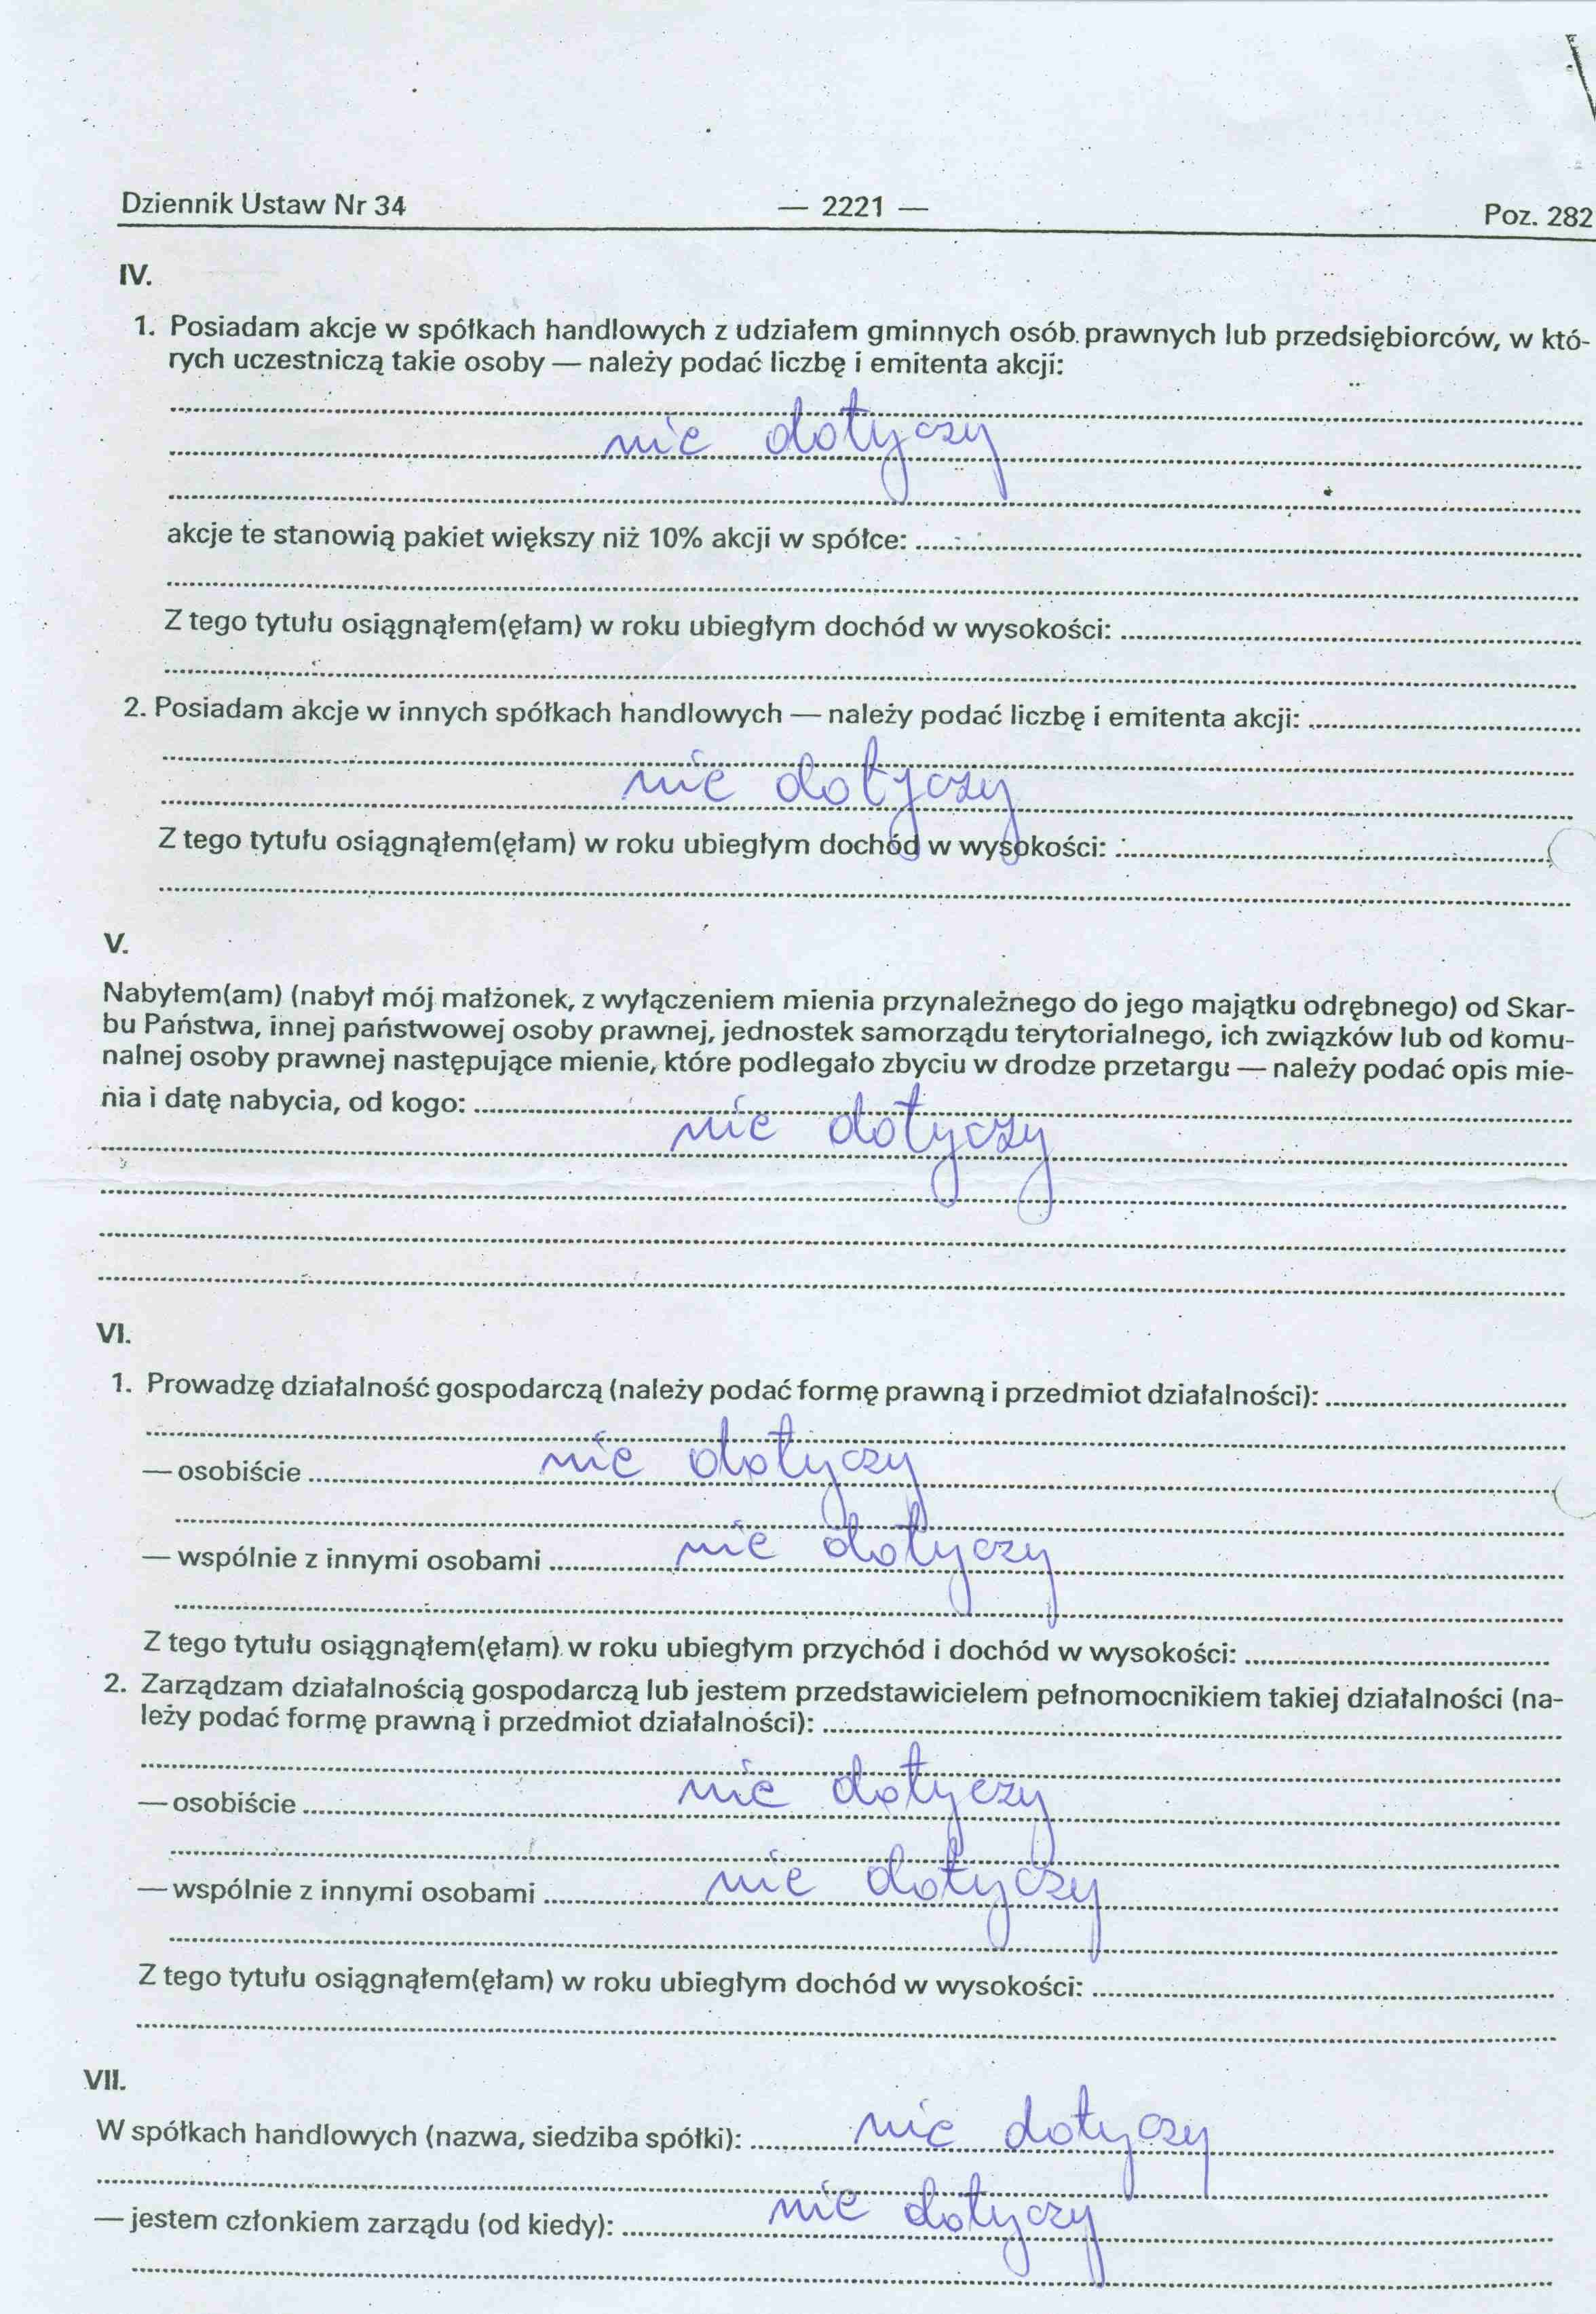 Dziennik Ustaw Nr 34 — 2221 — Poz. 282
IV.
1. Posiadam akcje w spółkach handlowych z udziałem gminnych osób prawnych lub przedsiębiorców, w któ-
rych uczestniczą takie osoby — należy podać liczbę i emitenta akcji:
nie dotyczy
akcje te stanowią pakiet większy niż 10% akcji w spółce:
Z tego tytułu osiągnąłem(ęłam) w roku ubiegłym dochód w wysokości:
2. Posiadam akcje w innych spółkach handlowych — należy podać liczbę i emitenta akcji:
nie dotyczy
Z tego tytułu osiągnąłem(ęłam) w roku ubiegłym dochód w wysokości:
V.
Nabyłem(am) (nabył mój małżonek, z wyłączeniem mienia przynależnego do jego majątku odrębnego) od Skar-
bu Państwa, innej państwowej osoby prawnej, jednostek samorządu terytorialnego, ich związków lub od komu-
nalnej osoby prawnej następujące mienie, które podlegało zbyciu w drodze przetargu — należy podać opis mie-
nia i datę nabycia, od kogo:
nie dotyczy
VI.
1. Prowadzę działalność gospodarczą (należy podać formę prawną i przedmiot działalności):
— osobiście nie dotyczy
— wspólnie z innymi osobami nie dotyczy
Z tego tytułu osiągnąłem(ęłam) w roku ubiegłym przychód i dochód w wysokości:
2. Zarządzam działalnością gospodarczą lub jestem przedstawicielem pełnomocnikiem takiej działalności (na-
leży podać formę prawną i przedmiot działalności):
— osobiście nie dotyczy
— wspólnie z innymi osobami nie dotyczy
Z tego tytułu osiągnąłem(ęłam) w roku ubiegłym dochód w wysokości:
VII.
W spółkach handlowych (nazwa, siedziba spółki): nie dotyczy
— jestem członkiem zarządu (od kiedy): nie dotyczy